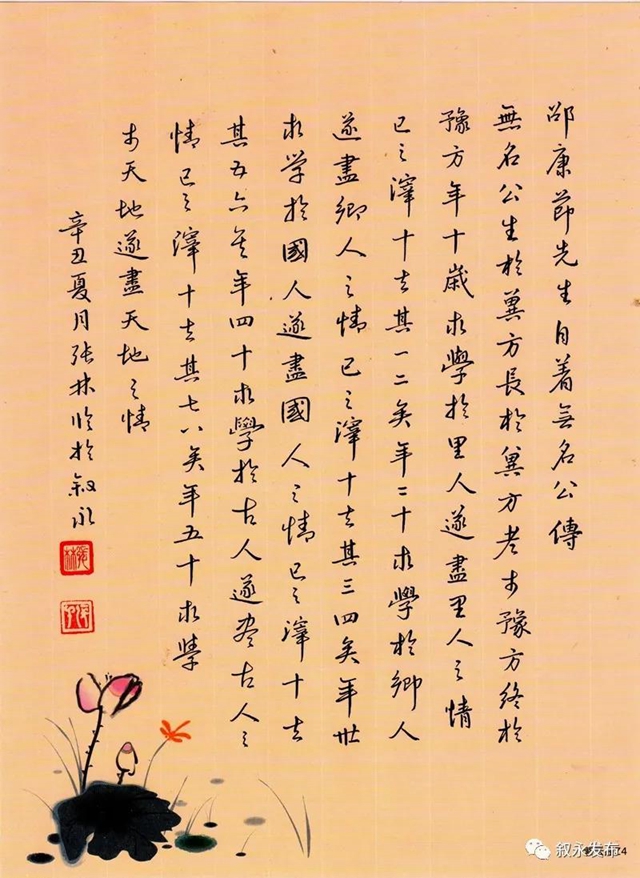 邵康節先生自著無名公傳
無名公生於冀方長於冀方老於豫方終於
豫方年十歲求學於里人遂盡里人之情
已之滓十去其一二矣年二十求學於鄉人
遂盡鄉人之情已之滓十去其三四矣年卅
求学於國人遂盡國人之情已之滓十去
其五六矣年四十求學於古人遂尽古人之
情已之滓十去其七八矣年五十求學
於天地遂盡天地之情
辛丑夏月张林临於叙永
張林
叙永发布